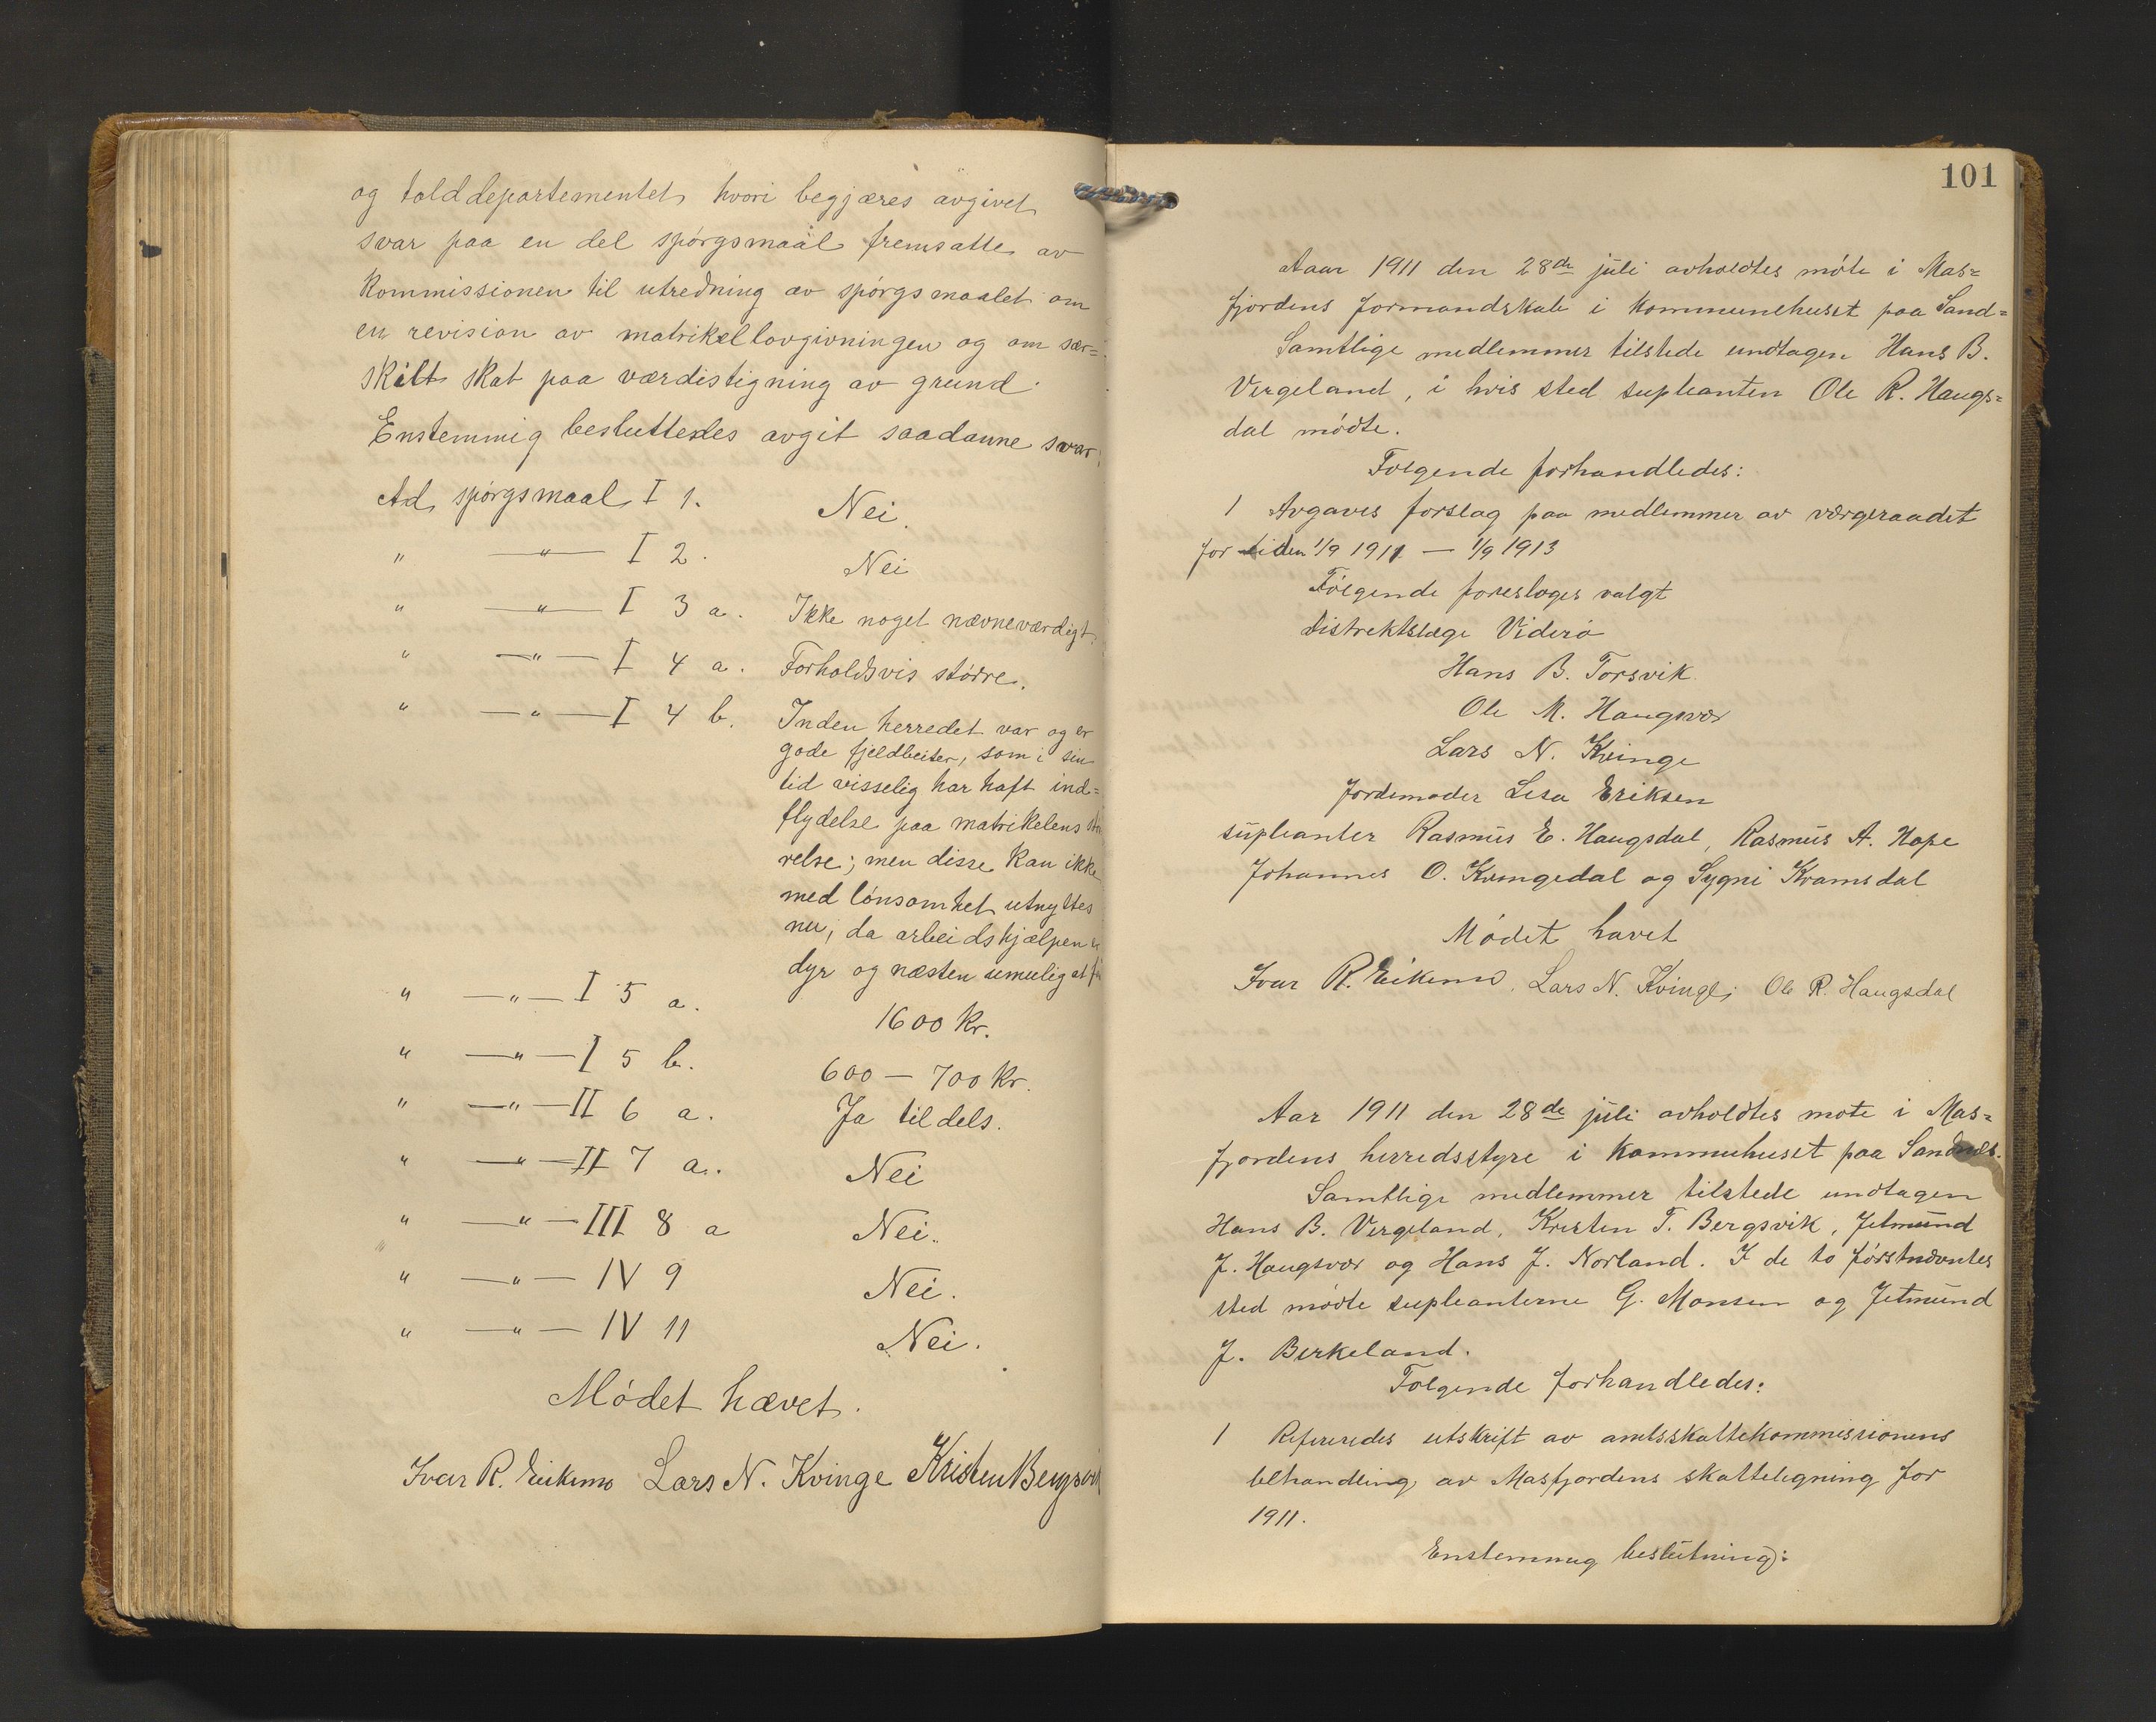 og tolddepartementet, hvori begjæres avgivet
svar paa en del spórgsmaal fremsatte av
Kommissionen til utredning av spórgsmaalet om
en revision av matrikellovgivningen og om sær=
skilt skat paa værdistigning av grund.
Enstemmig besluttedes avgit saadanne svar:
Ad spórgsmaal I 1. Nei.
" —"— I 2. Nei
" —"— I 3 a. Ikke noget nævneværdigt.
" —"— I 4 a. Forholdsvis stórre.
" —"— I 4 b. Inden herredet var og er
gode fjeldbeiter, som i sin
tid visselig har haft ind=
flydelse paa matrikelens stó
relse; men disse kan ikke
med lónsomhet utnyttes
nu, da arbeidshjælpen e
dyr og næsten umulig at få
" —"— I 5 a. 1600 Kr.
" —"— I 5 b. 600 — 700 Kr.
" —"— II 6 a. Ja tildels.
" —"— II 7 a. Nei
" —"— III 8 a Nei.
" —"— IV 9 Nei.
" —"— IV 11 Nei.
Módet hævet.
Ivar R. Eikemo Lars N. Kvinge Kristen Bergsvik
101
Aaar 1911 den 28de juli avholdtes móte i Mas=
fjordens formandskab i Kommunehuset paa Sand=
Samtlige medlemmer tilstede undtagen Hans B.
Vergeland, i hvis sted supleanten Ole R. Haugs=
dal módte.
Folgende forhandledes:
1 Avgaves forslag paa medlemmer av værgeraadet
for tiden 1/9 1911 — 1/9 1913
Fólgende foresloges valgt
distriktslæge Videró
Hans B. Torsvik
Ole M. Haugsvær
Lars N. Kvinge
Jordemoder Lisa Eriksen
supleanter Rasmus E. Haugsdal, Rasmus A. Hope
Johannes O. Kvingedal og Sygni Kvamsdal
Módet hævet
Ivar R. Eikemo. Lars N. Kvinge; Ole R. Haugsdal
Aar 1911 den 28de juli avholdtes mote i Mas=
fjordens herredsstyre i Kommuhuset paa Sandnes.
Samtlige medlemmer tilstede undtagen
Hans B. Vergeland, Kristen T. Bergsvik, Jetmund
J. Haugsvær og Hans J. Norland. I de to fórstnævntes
sted módte supleanterne G. Monsen og Jetmund
J. Birkeland.
Folgende forhandledes:
1 Refereredes utskrift av amtsskattekommissionens
behandling av Masfjordens skatteligning for
1911.
Enstemmig beslutning: